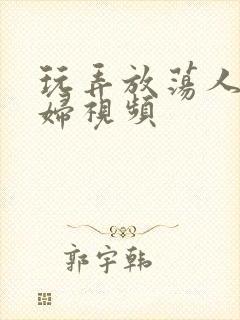 玩弄放荡人
婦視頻
郭宇韩